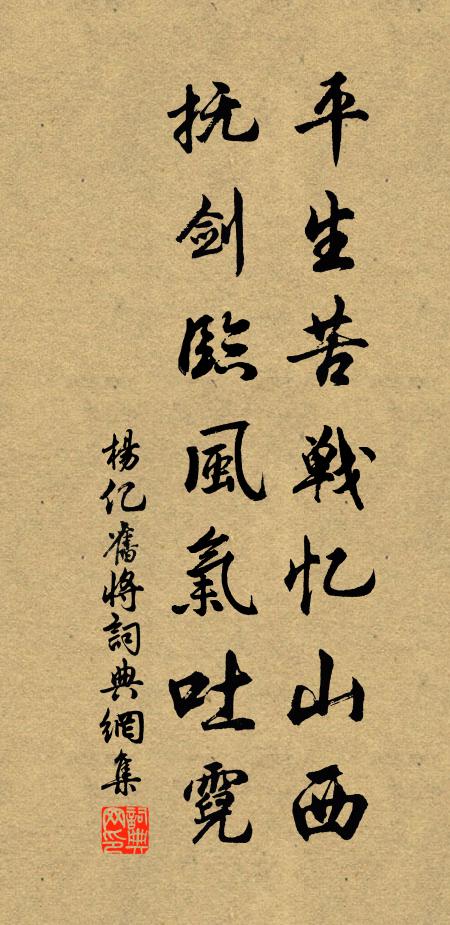 平生苦戦忆山西
抚剑臨風氣吐霓
楊亿舊將詞典網集
詞典網印